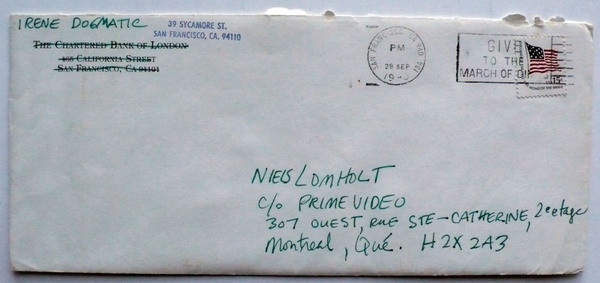 IRENE DOGMATIC
39 SYCAMORE ST.
SAN FRANCISCO, CA. 94110
THE CHARTERED BANK OF LONDON
465 CALIFORNIA STREET
SAN FRANCISCO, CA 94104
SAN FRANCISCO, CA
PM
29 SEP
GIVE
TO THE
MARCH OF DI
15c
NIELS LOMHOLT
C/O PRIME VIDEO
307 OUEST, RUE STE-CATHERINE, 2e etage
Montreal, Qué. H2X 2A3